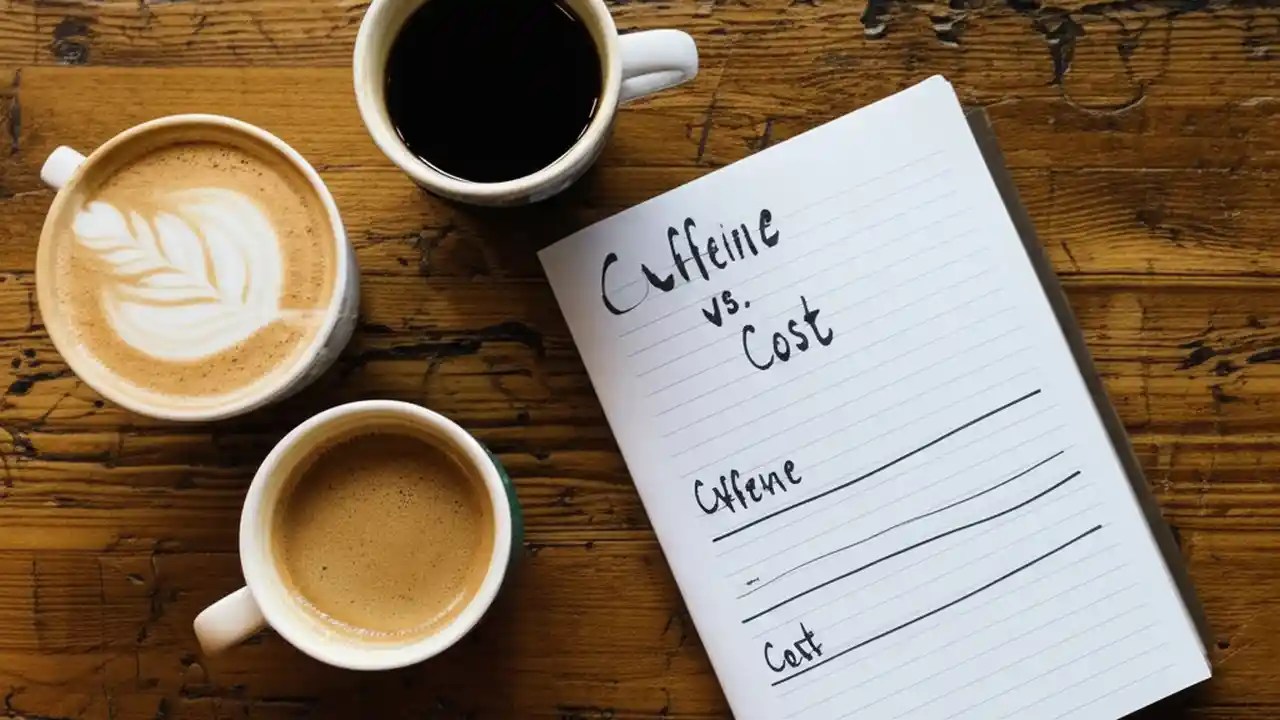 Caffeine
vs.
Cost
Caffeine
Cost